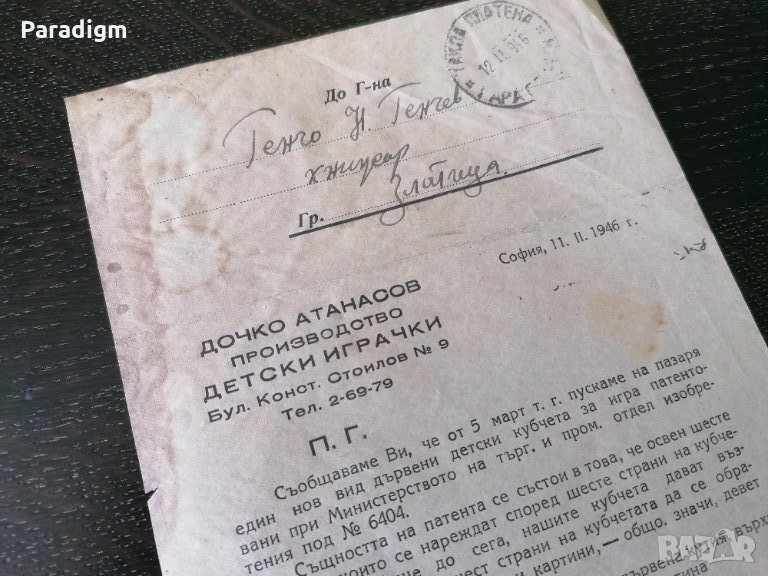 Paradigm
ТАКСА ПЛАТЕНА
12.II.946
До Г-на
Генчо Н. Генчев
Гр. Златица
София, 11. II. 1946 г.
ДОЧКО АТАНАСОВ
ПРОИЗВОДСТВО
ДЕТСКИ ИГРАЧКИ
Бул. Конст. Стоилов № 9
Тел. 2-69-79
П. Г.
Съобщаваме Ви, че от 5 март т. г. пускаме на пазаря
един нов вид дървени детски кубчета за игра патенто-
вани при Министерството на търг. и пром. отдел изобре-
тения под № 6404.
Същността на патента се състои в това, че освен шесте
които се нареждат според шесте страни на кубче-
до сега, нашите кубчета дават въз-
шест страни на кубчетата да се обра-
и картини, — общо. значи, девет
първена кутия върху
bazar